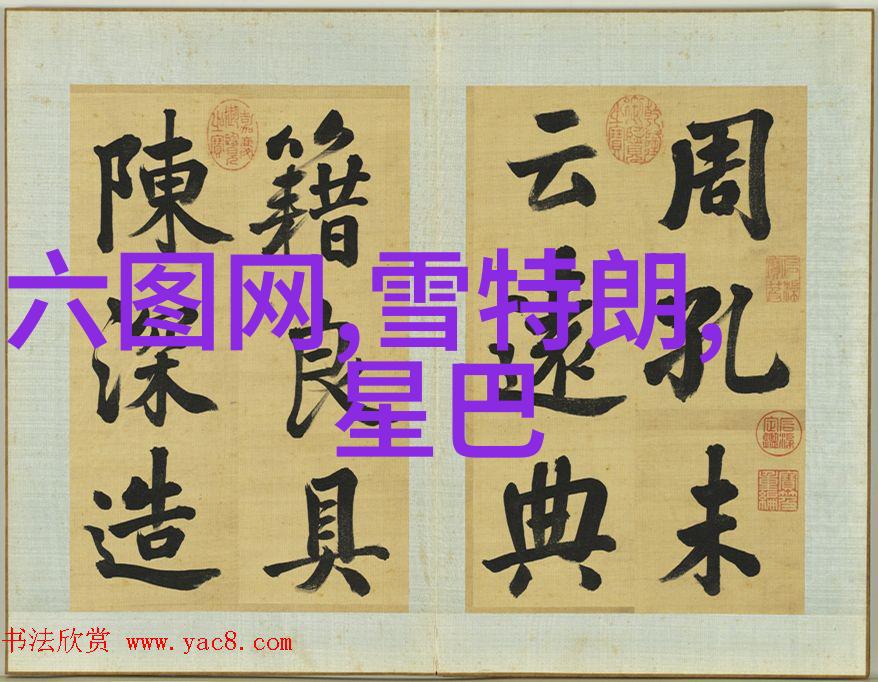 周孔未
云遠典
籍良具
陳深造
六图网,雪特朗,
星巴
书法欣赏 www.yac8.com